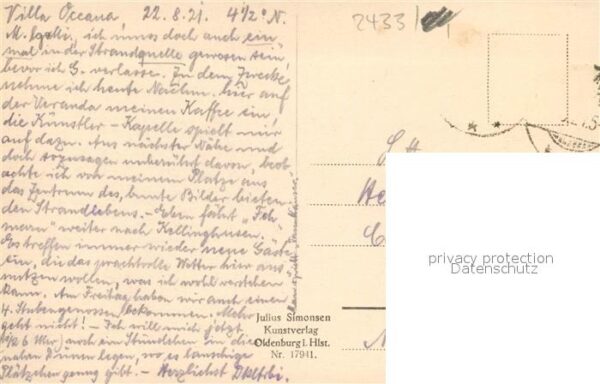 Villa Oceana, 22.8.21. 4½° N.
M. , ich muss doch auch ein-
mal in der Strandquelle gewesen sein,
bevor ich G. verlasse. Zu dem Zwecke
nehme ich heute Nachm. hier auf
der Veranda meinen Kaffee ein,
die Künstler-Kapelle spielt mir
auf dazu. Aus nächster Nähe und
doch sozusagen unberührt davon, beob-
achte ich von meinem Platze aus
das Zentrum des, bunte Bilder bieten-
den Strandlebens. – Eben fährt "Feh-
marn" weiter nach Kellinghusen. –
Es treffen immer wieder neue Gäste
ein, die das prachtvolle Wetter hier aus-
nutzen wollen, was ich wohl verstehen
kann. Am Freitag haben wir auch einen
4. Stubengenossen bekommen. Mehr
geht nicht! – Ich will mich jetzt
(½6 Uhr) noch ein Stündchen in die
nahen Dünen legen, wo es lauschige
Plätzchen genug gibt. – Herzlichst
2433
Julius Simonsen
Kunstverlag
Oldenburg i. Hlst.
Nr. 17941.
privacy protection
Datenschutz